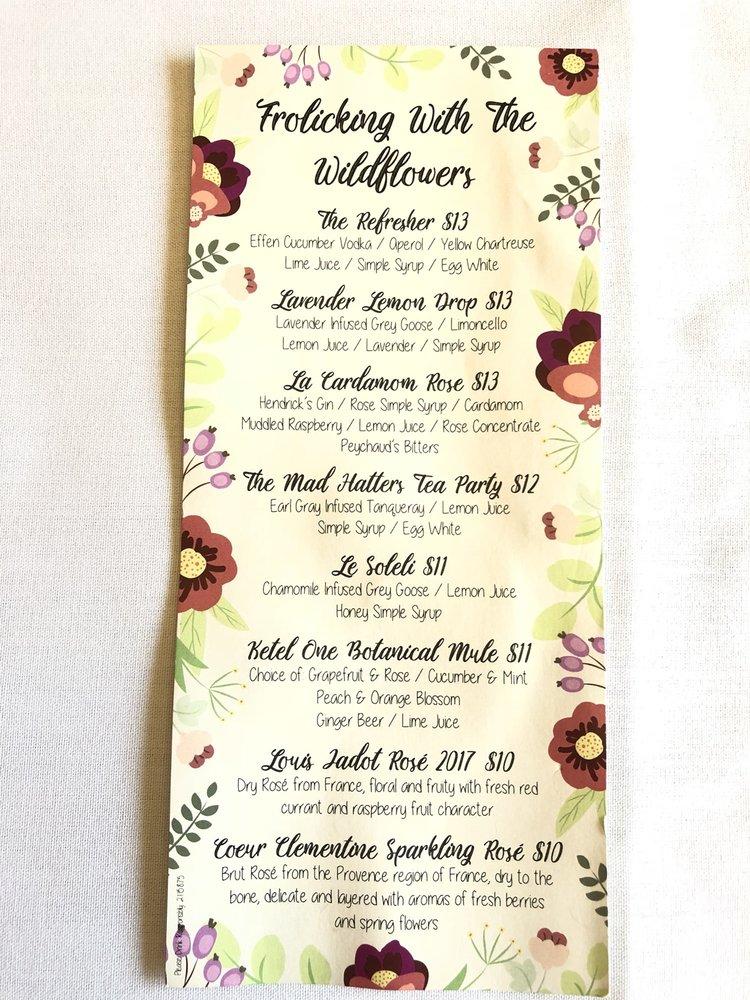 Frolicking With The
Wildflowers
The Refresher $13
Effen Cucumber Vodka / Aperol / Yellow Chartreuse
Lime Juice / Simple Syrup / Egg White
Lavender Lemon Drop $13
Lavender Infused Grey Goose / Limoncello
Lemon Juice / Lavender / Simple Syrup
La Cardamom Rose $13
Hendrick's Gin / Rose Simple Syrup / Cardamom
Muddled Raspberry / Lemon Juice / Rose Concentrate
Peychaud's Bitters
The Mad Hatters Tea Party $12
Earl Gray Infused Tanqueray / Lemon Juice
Simple Syrup / Egg White
Le Soleli $11
Chamomile Infused Grey Goose / Lemon Juice
Honey Simple Syrup
Ketel One Botanical Mule $11
Choice of Grapefruit & Rose / Cucumber & Mint
Peach & Orange Blossom
Ginger Beer / Lime Juice
Louis Jadot Rosé 2017 $10
Dry Rosé from France, floral and fruity with fresh red
currant and raspberry fruit character
Coeur Clementine Sparkling Rosé $10
Brut Rosé from the Provence region of France, dry to the
bone, delicate and layered with aromas of fresh berries
and spring flowers
Please Drink Responsibly